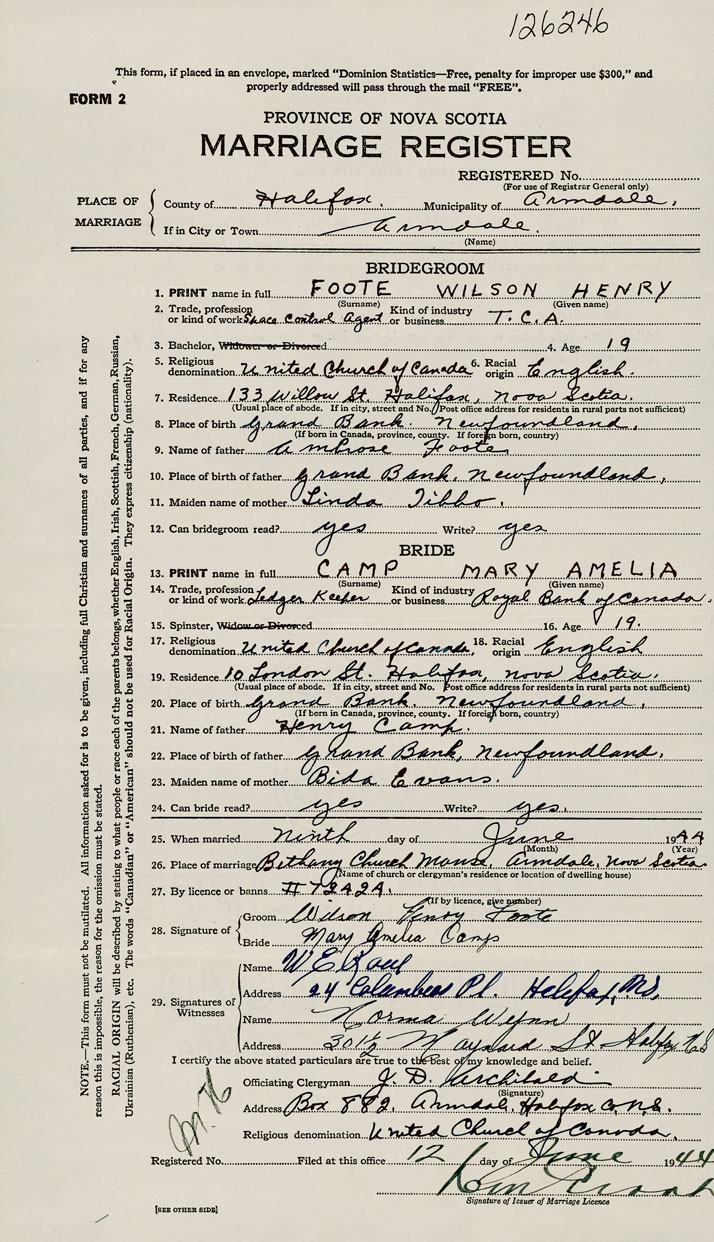 126246
This form, if placed in an envelope, marked “Dominion Statistics—Free, penalty for improper use $300,” and
properly addressed will pass through the mail “FREE”.
FORM 2
PROVINCE OF NOVA SCOTIA
MARRIAGE REGISTER
REGISTERED No.
(For use of Registrar General only)
PLACE OF MARRIAGE
County of Halifax. Municipality of Armdale.
If in City or Town Armdale.
(Name)
BRIDEGROOM
1. PRINT name in full FOOTE WILSON HENRY
(Surname) (Given name)
2. Trade, profession or kind of work Space Control Agent Kind of industry or business T.C.A.
3. Bachelor, Widower or Divorced 4. Age 19
5. Religious denomination United Church of Canada 6. Racial origin English.
7. Residence 133 Willow St. Halifax, Nova Scotia.
(Usual place of abode. If in city, street and No. Post office address for residents in rural parts not sufficient)
8. Place of birth Grand Bank. Newfoundland.
(If born in Canada, province, county. If foreign born, country)
9. Name of father Ambrose Foote
10. Place of birth of father Grand Bank. Newfoundland,
11. Maiden name of mother Linda Tibbo.
12. Can bridegroom read? yes Write? yes
BRIDE
13. PRINT name in full CAMP MARY AMELIA
(Surname) (Given name)
14. Trade, profession or kind of work Ledger Keeper Kind of industry or business Royal Bank of Canada.
15. Spinster, Widow or Divorced 16. Age 19.
17. Religious denomination United Church of Canada. 18. Racial origin English
19. Residence 10 London St. Halifax, Nova Scotia.
(Usual place of abode. If in city, street and No. Post office address for residents in rural parts not sufficient)
20. Place of birth Grand Bank. Newfoundland.
(If born in Canada, province, county. If foreign born, country)
21. Name of father Henry Camp.
22. Place of birth of father Grand Bank, Newfoundland.
23. Maiden name of mother Bida Evans.
24. Can bride read? yes Write? yes.
25. When married Ninth day of June 1944
(Month) (Year)
26. Place of marriage Bethany Church Manse, Armdale, Nova Scotia
(Name of church or clergyman's residence or location of dwelling house)
27. By licence or banns #72424.
(If by licence, give number)
28. Signature of
Groom Wilson Henry Foote
Bride Mary Amelia Camp
29. Signatures of Witnesses
Name W E
Address 24 Columbus Pl. Halifax, N.S.
Name Norma Wynn
Address 301½ Maynard St. Halifax N.S
I certify the above stated particulars are true to the best of my knowledge and belief.
Officiating Clergyman J. D. Archibald
(Signature)
Address Box 882, Armdale, Halifax Co N.S.
Religious denomination United Church of Canada.
Registered No. Filed at this office 12 day of June 1944
Signature of Issuer of Marriage Licence
[SEE OTHER SIDE]
NOTE.—This form must not be mutilated. All information asked for is to be given, including full Christian and surnames of all parties, and if for any
reason this is impossible, the reason for the omission must be stated.
RACIAL ORIGIN will be described by stating to what people or race each of the parents belongs, whether English, Irish, Scottish, French, German, Russian,
Ukrainian (Ruthenian), etc. The words “Canadian” or “American” should not be used for Racial Origin. They express citizenship (nationality).